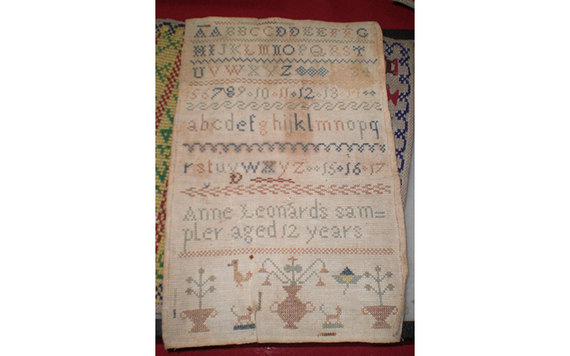 AABBCCDDEEFFG
HIJKLMNOPQRST
UVWXYZ
56789·10·11·12·13·14
abcdefghijklmnopq
rstuvwxyz 15·16·17
Anne Leonards sam=
pler aged 12 years